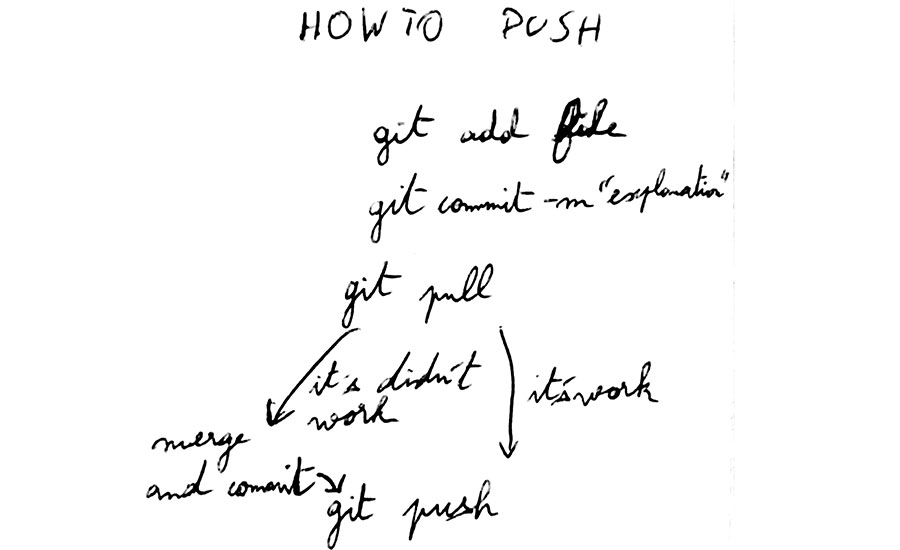 HOW TO PUSH
git add file
git commit -m "explanation"
git pull
it's didn't
work
it's work
merge
and commit
git push